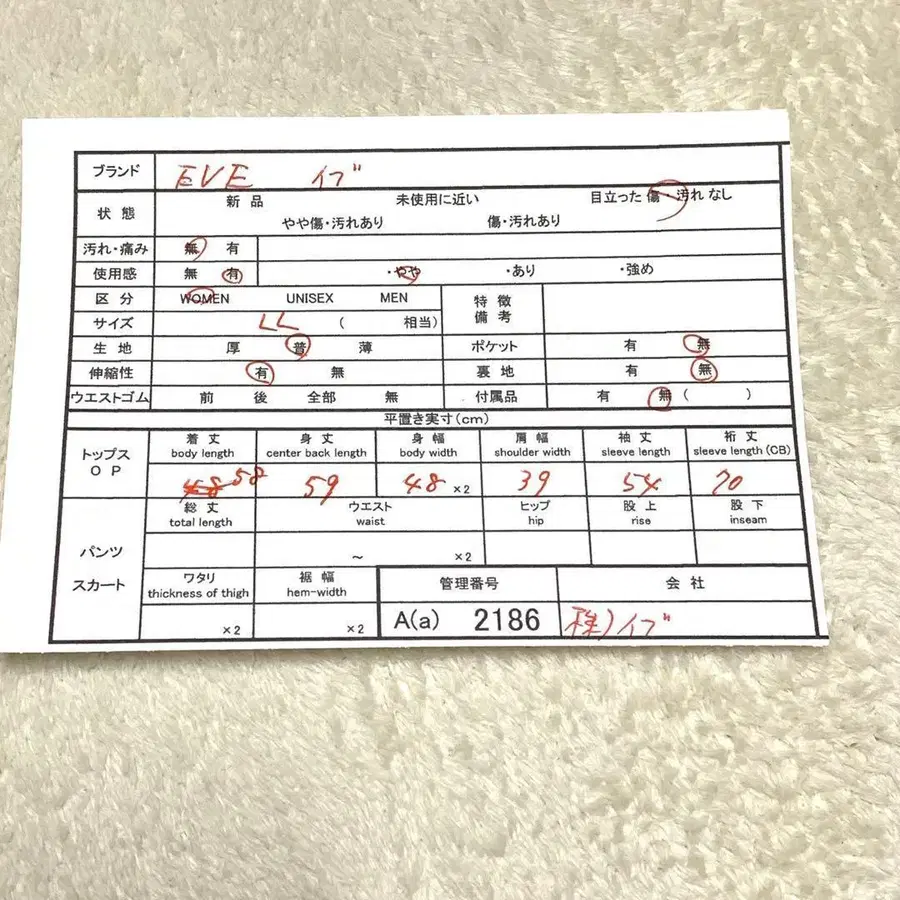 ブランド EVE イブ
状態 新品 未使用に近い 目立った傷・汚れなし
やや傷・汚れあり 傷・汚れあり
汚れ・痛み 無 有
使用感 無 有 ・やや ・あり ・強め
区分 WOMEN UNISEX MEN 特徴備考
サイズ LL ( 相当)
生地 厚 普 薄 ポケット 有 無
伸縮性 有 無 裏地 有 無
ウエストゴム 前 後 全部 無 付属品 有 無 ( )
平置き実寸(cm)
トップス OP 着丈 身丈 身幅 肩幅 袖丈 裄丈
body length center back length body width shoulder width sleeve length sleeve length (CB)
48 58 59 48 ×2 39 54 70
パンツ スカート 総丈 ウエスト ヒップ 股上 股下
total length waist hip rise inseam
~ ×2
ワタリ 裾幅 管理番号 会社
thickness of thigh hem-width
×2 ×2 A(a) 2186 (株)イブ